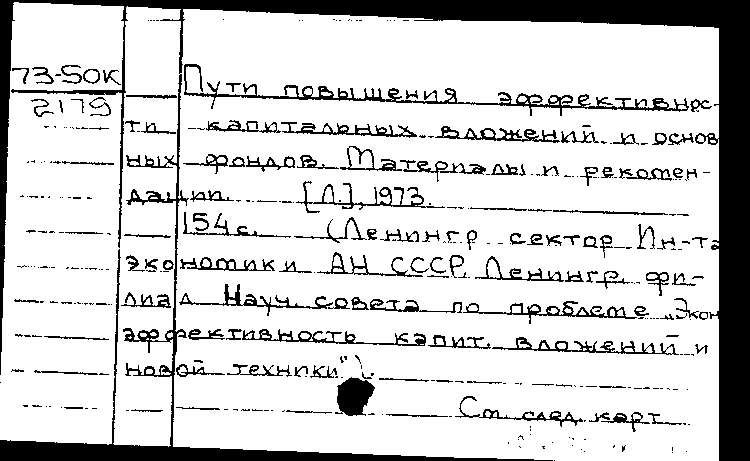 73-50К
2179
Пути повышения эффективнос-
ти капитальных вложений и основ
ных фондов. Материалы и рекомен-
дации. [Л.], 1973.
154 с. (Ленингр сектор Ин-та
экономики АН СССР. Ленингр. фи-
лиал Науч. совета по проблеме „Экон
эффективность капит. вложений и
новой техники").
См. след. карт